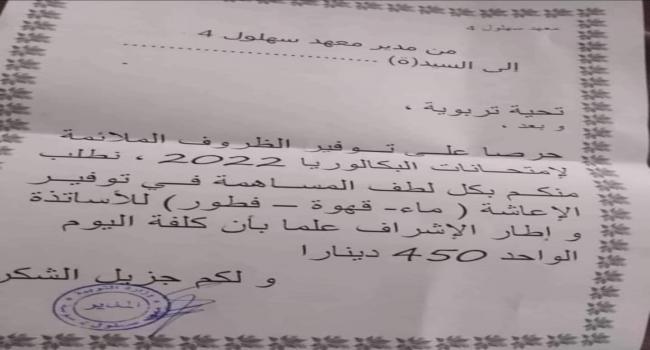 معهد سهلول 4
من مدير معهد سهلول 4
الى السيد(ة) ........................................
تحية تربوية ،
و بعد ،
حرصا على توفير الظروف الملائمة
لإمتحانات البكالوريا 2022 ، نطلب
منكم بكل لطف المساهمة في توفير
الإعاشة ( ماء- قهوة – فطور) للأساتذة
و إطار الإشراف علما بأن كلفة اليوم
الواحد 450 دينارا
و لكم جزيل الشكر
وزارة التربية
المدير